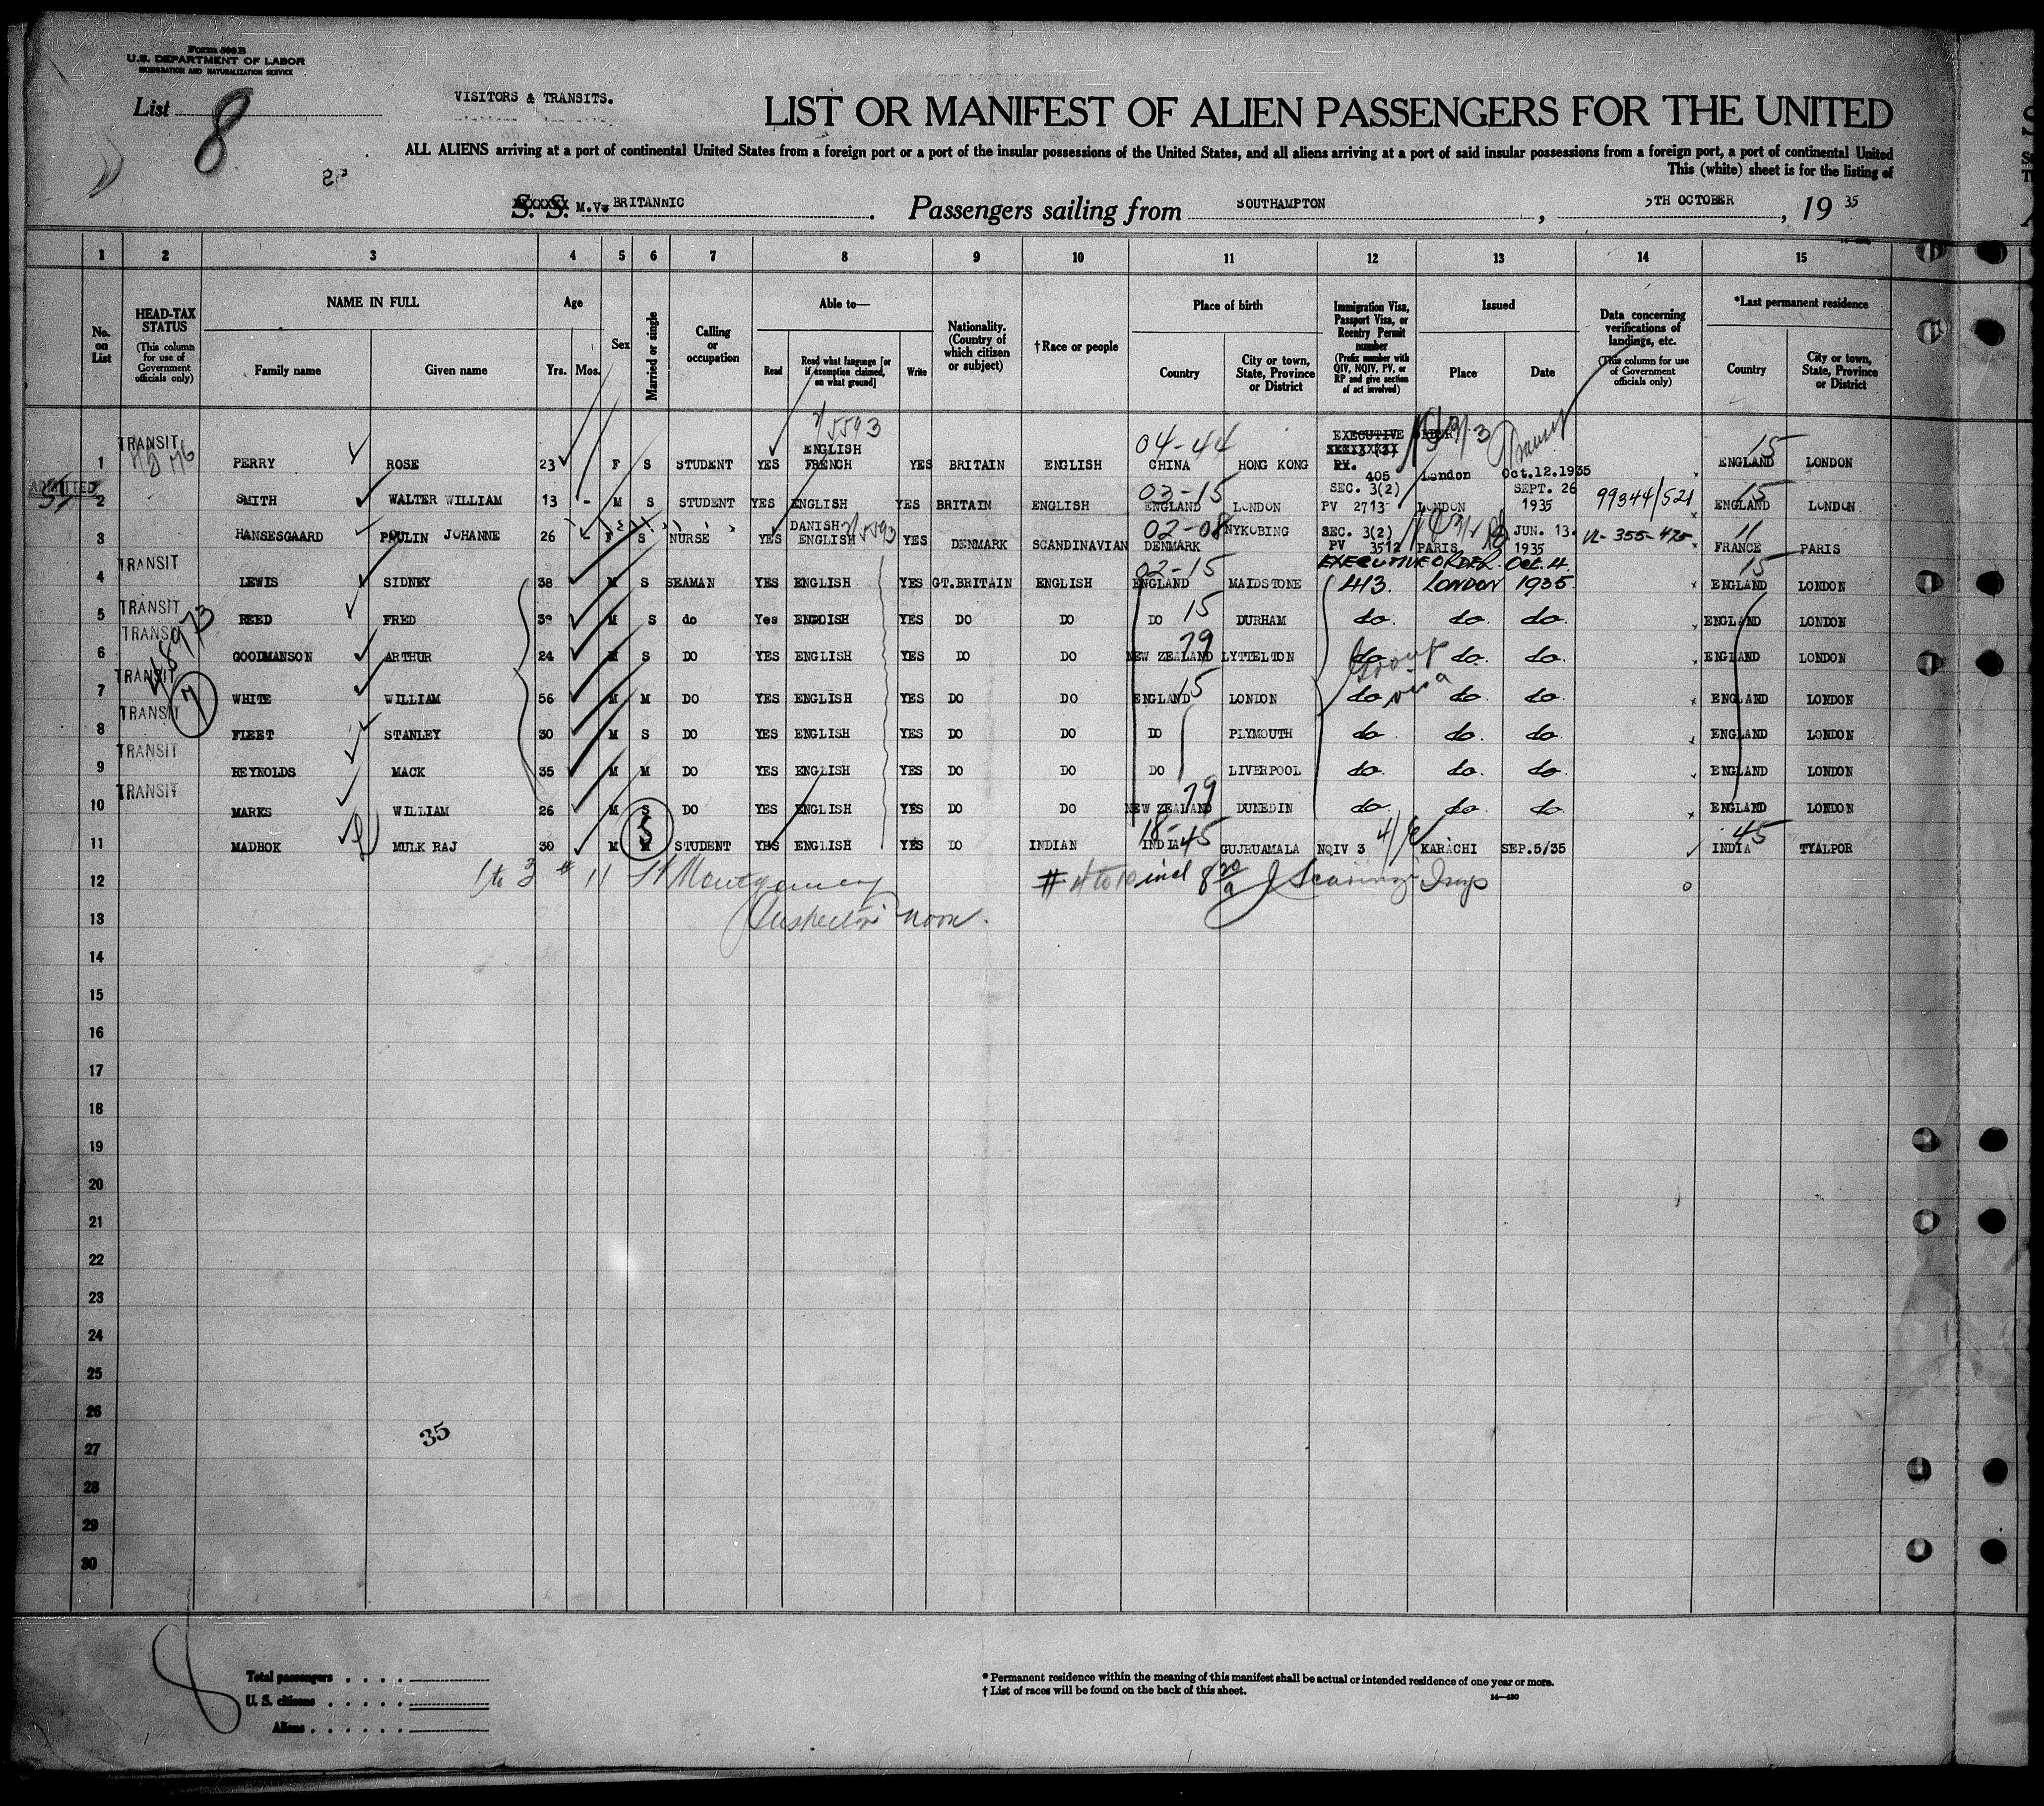 Form 500 B
U.S. DEPARTMENT OF LABOR
IMMIGRATION AND NATURALIZATION SERVICE
List 8
VISITORS & TRANSITS.
LIST OR MANIFEST OF ALIEN PASSENGERS FOR THE UNITED
ALL ALIENS arriving at a port of continental United States from a foreign port or a port of the insular possessions of the United States, and all aliens arriving at a port of said insular possessions from a foreign port, a port of continental United
This (white) sheet is for the listing of
S. S. M.V. BRITANNIC. Passengers sailing from SOUTHAMPTON, 5TH OCTOBER, 19 35
1 2 3 4 5 6 7 8 9 10 11 12 13 14 15
No. on List
HEAD-TAX STATUS (This column for use of Government officials only)
NAME IN FULL Family name Given name
Age Yrs. Mos.
Sex
Married or single
Calling or occupation
Able to— Read Read what language [or if exemption claimed, on what ground] Write
Nationality. (Country of which citizen or subject)
†Race or people
Place of birth Country City or town, State, Province or District
Immigration Visa, Passport Visa, or Reentry Permit number (Prefix number with QIV, NQIV, PV, or RP and give section of act involved)
Issued Place Date
Data concerning verifications of landings, etc. (This column for use of Government officials only)
*Last permanent residence Country City or town, State, Province or District
TRANSIT 1 PERRY ROSE 23 F S STUDENT YES ENGLISH FRENCH YES BRITAIN ENGLISH 04-44 CHINA HONG KONG EXECUTIVE ORDER 405 London Oct.12.1935 Transit 15 ENGLAND LONDON
ADMITTED 2 SMITH WALTER WILLIAM 13 - M S STUDENT YES ENGLISH YES BRITAIN ENGLISH 03-15 ENGLAND LONDON SEC. 3(2) PV 2713 LONDON SEPT. 26 1935 99344/521 15 ENGLAND LONDON
3 HANSESGAARD PAULIN JOHANNE 26 F S NURSE YES DANISH ENGLISH YES DENMARK SCANDINAVIAN 02-08 DENMARK NYKOBING SEC. 3(2) PV 3512 PARIS JUN. 13. 1935 VL-355-475 11 FRANCE PARIS
TRANSIT 4 LEWIS SIDNEY 38 M S SEAMAN YES ENGLISH YES GT.BRITAIN ENGLISH 02-15 ENGLAND MAIDSTONE EXECUTIVE ORDER 413. LONDON Oct. 4. 1935. 15 ENGLAND LONDON
TRANSIT 5 REED FRED 39 M S do Yes ENGDISH YES DO DO DO 15 DURHAM do. do. do. ENGLAND LONDON
TRANSIT 6 GOODMANSON ARTHUR 24 M S DO YES ENGLISH YES DO DO NEW ZEALAND 79 LYTTELTON do do. do. ENGLAND LONDON
TRANSIT 7 WHITE WILLIAM 56 M M DO YES ENGLISH YES DO DO ENGLAND 15 LONDON do do. do. ENGLAND LONDON
TRANSIT 8 FLEET STANLEY 30 M S DO YES ENGLISH YES DO DO DO PLYMOUTH do. do. do. ENGLAND LONDON
TRANSIT 9 REYNOLDS MACK 35 M M DO YES ENGLISH YES DO DO DO LIVERPOOL do. do. do. ENGLAND LONDON
TRANSIT 10 MARKS WILLIAM 26 M S DO YES ENGLISH YES DO DO NEW ZEALAND 79 DUNEDIN do do. do ENGLAND LONDON
11 MADHOK MULK RAJ 30 M S STUDENT YES ENGLISH YES DO INDIAN 18-45 INDIA GUJRUAMALA NQIV 3 KARACHI SEP.5/35 45 INDIA TYALPOR
12 1 to 3 # 11 Montgomery # 4 to 10 incl
13 Inspector noon.
14
15
16
17
18
19
20
21
22
23
24
25
26
27
28
29
30
35
8
Total passengers
U. S. citizens
Aliens
* Permanent residence within the meaning of this manifest shall be actual or intended residence of one year or more.
† List of races will be found on the back of this sheet.
14—430